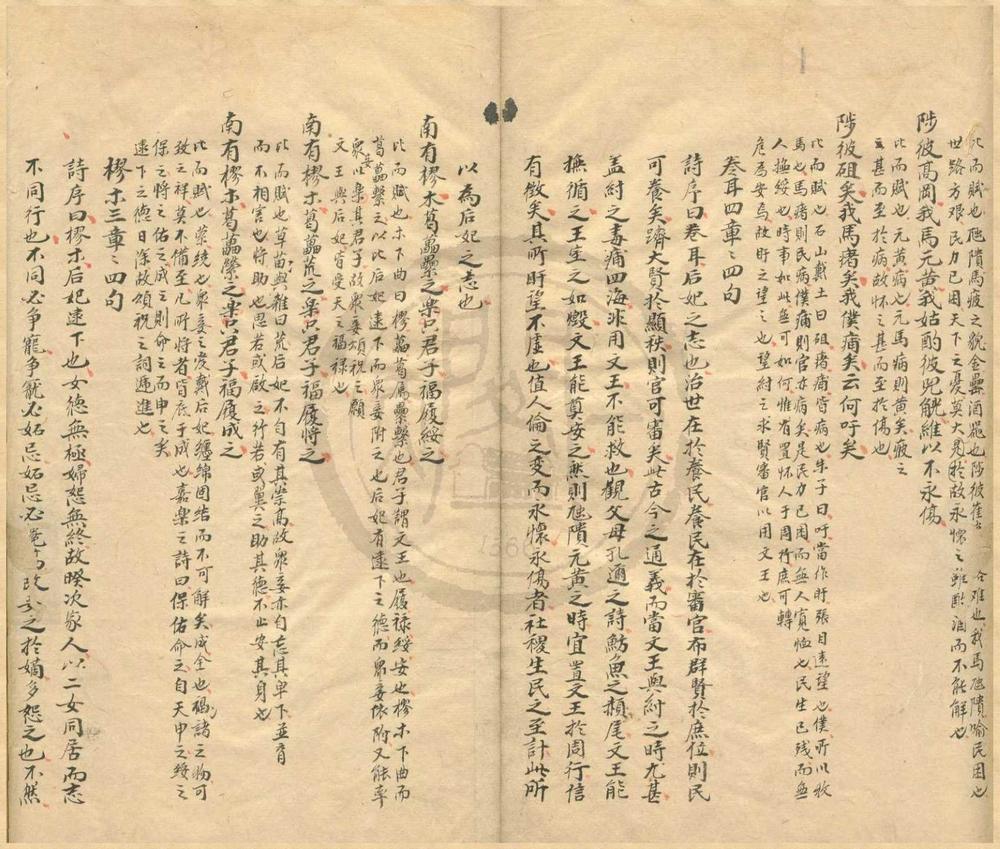 比而賦也虺隤馬疲之貌金罍酒器也陟彼崔 令难也我馬虺隤喻民困也
世路方艱民力已困天下之憂莫大焉於故永懷之雖飲酒而不能解也
陟彼高岡我馬元黃我姑酌彼兕觥維以不永傷
比而賦也元黃病也元馬病則黃矣疲之
甚而至於病故怀之甚而至於傷也
陟彼砠矣我馬瘏矣我僕痡矣云何吁矣
比而賦也石山戴土曰砠瘏痡皆病也朱子曰吁當作盱張目遠望也僕所以牧
馬也馬瘏則民病僕痡則官亦病矣是民力已困而無人寬恤也民生已残而無
人撫綏也時事如此無可如何惟有置怀人于周行庶可轉
危為安焉故盱之望之也望紂之求賢審官以用文王也
卷耳四章章四句
詩序曰卷耳后妃之志也治世在於養民養民在於審官布群賢於庶位則民
可養矣躋大賢於顯秩則官可審矣此古今之通義而當文王與紂之時尤甚
盖紂之毒痡四海非用文王不能救也觀父母孔邇之詩魴魚之赬尾文王能
撫循之王室之如燬文王能奠安之然則虺隤元黃之時宜置文王於周行信
有徵矣其所盱望不虛也值人倫之变而永懷永傷者社稷生民之至計此所
以為后妃之志也
南有樛木葛藟纍之樂只君子福履綏之
比而賦也木下曲曰樛藟葛属纍繫也君子謂文王也履禄綏安也樛木下曲而
葛藟繫之以比后妃逮下而眾妾附之也后妃有逮下之德而眾妾依附又能率
眾妾以樂其君子故眾妾頌祝之願
文王與后妃皆受天之福禄也
南有樛木葛藟荒之樂只君子福履將之
比而賦也草苗與雜曰荒后妃不自有其崇高故眾妾亦自忘其卑下並育
而不相害也將助也思若或啟之行若或翼之助其德不止安其身也
南有樛木葛藟縈之樂只君子福履成之
比而賦也縈繞也眾妾之爱戴后妃纏綿固结而不可解矣成全也福諸之物可
致之祥莫不備至凡所將者皆底于成也嘉樂之詩曰保佑命之自天申之綏之
保之將之佑之成之則命之而申之矣
逮下之德日深故頌祝之詞递進也
樛木三章章四句
詩序曰樛木后妃逮下也女德無極婦怨無終故暌次家人以二女同居而志
不同行也不同必争寵争寵必妬忌妬忌必 之於嫡多怨之也不然